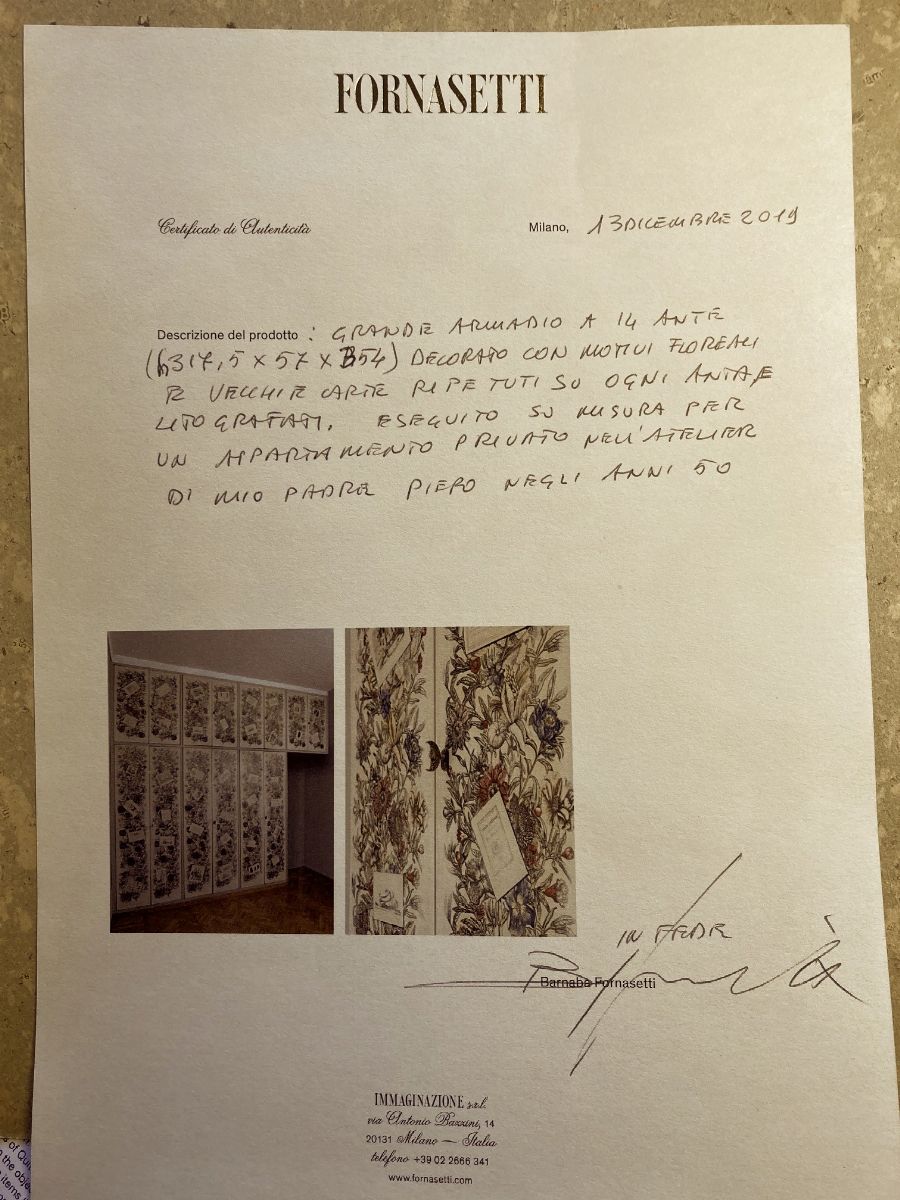 FORNASETTI
Certificato di Autenticità
Milano, 13 DICEMBRE 2019
Descrizione del prodotto : GRANDE ARMADIO A 14 ANTE
(h317,5 x 57 x 354) DECORATO CON MOTIVI FLOREALI
E VECCHIE CARTE RIPETUTI SU OGNI ANTA E
LITOGRAFATI. ESEGUITO SU MISURA PER
UN APPARTAMENTO PRIVATO NELL'ATELIER
DI MIO PADRE PIERO NEGLI ANNI 50
IN FEDE
Barnaba Fornasetti
IMMAGINAZIONE s.r.l.
via Antonio Bazzini, 14
20131 Milano — Italia
telefono +39 02 2666 341
www.fornasetti.com